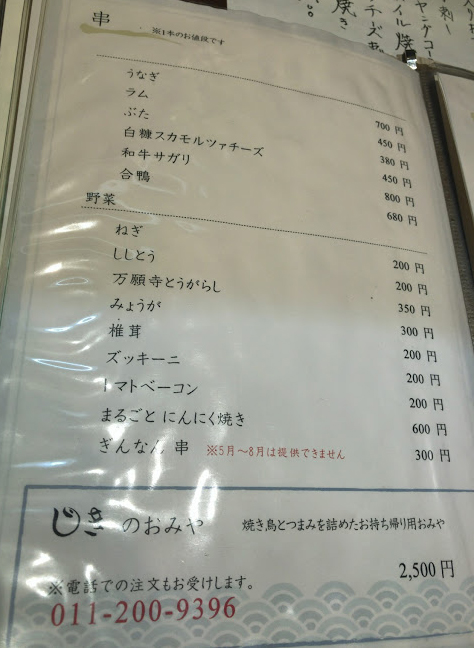 串 ※1本のお値段です
うなぎ 700 円
ラム 450 円
ぶた 380 円
白糠スカモルツァチーズ 450 円
和牛サガリ 800 円
合鴨 680 円
野菜
ねぎ 200 円
ししとう 200 円
万願寺とうがらし 350 円
みょうが 300 円
椎茸 200 円
ズッキーニ 200 円
トマトベーコン 200 円
まるごとにんにく焼き 600 円
ぎんなん 串 ※5月〜8月は提供できません 300 円
じき のおみや 焼き鳥とつまみを詰めたお持ち帰り用おみや
2,500円
※電話での注文もお受けします。
011-200-9396
ヤングコー
イル焼
チーズ
焼き